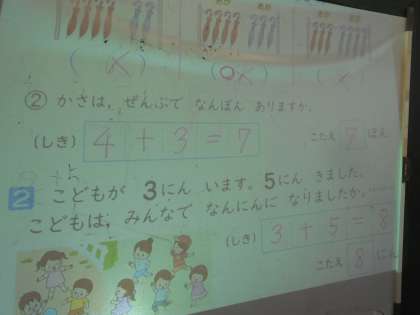 ② かさは、ぜんぶで なんぼん ありますか。
(しき) 4 + 3 = 7 こたえ 7 ほん
2 こどもが 3にん います。5にん きました。
こどもは、みんなで なんにんに なりましたか。
(しき) 3 + 5 = 8
こたえ 8 にん